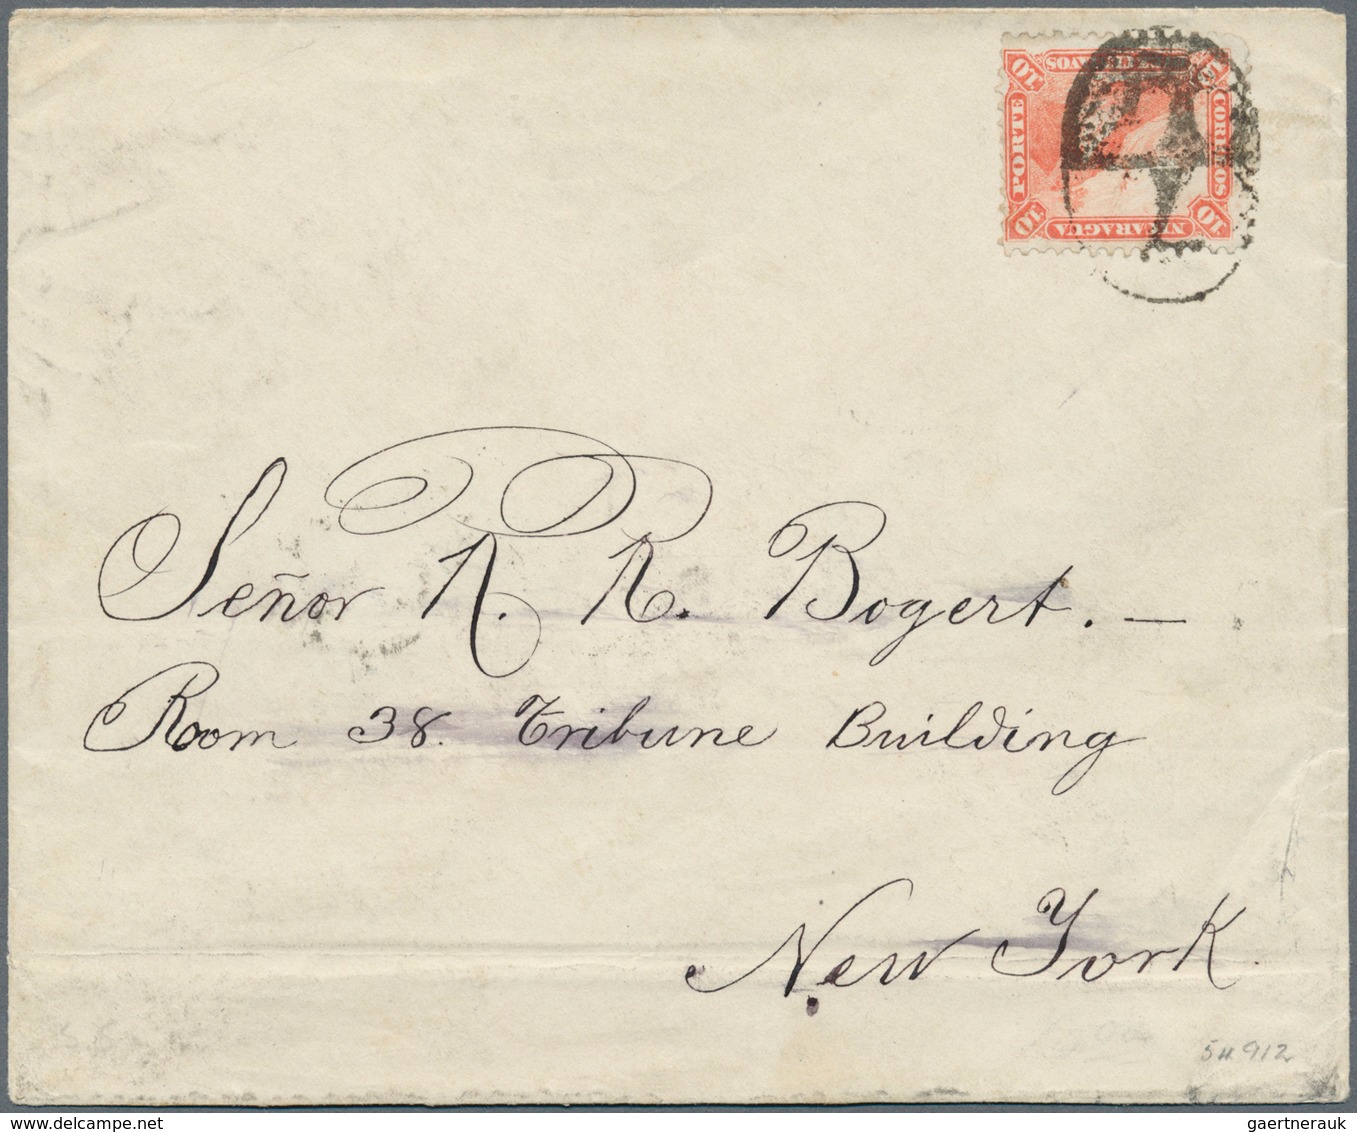 NICARAGUA
10
10
PORTE
CORREOS
10
Señor R. R. Bogert. —
Room 38. Tribune Building
New York.
54912
gaertnerauk